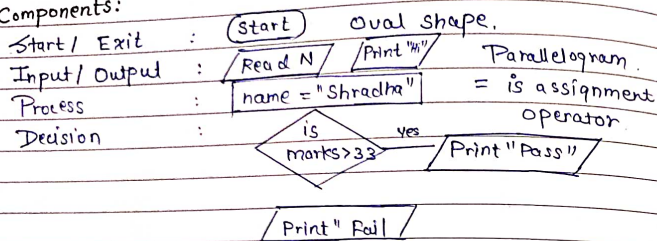 Components:
Start / Exit : Start Oval shape.
Input / Output : Read N Print "Hi" Parallelogram.
Process : name = "Shradha" = is assignment operator.
Decision : is marks>33 yes Print "Pass"
Print " Fail